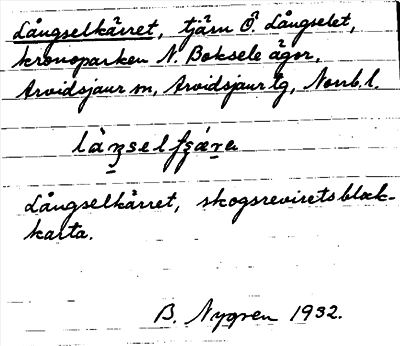 Långselkärret, tjärn Ö. Långselet,
kronoparken N. Boksele ägor,
Arvidsjaur sn, Arvidsjaur tg, Norrb. l.
Långselkärret, skogsrevirets block-
karta.
B. Nygren 1932.